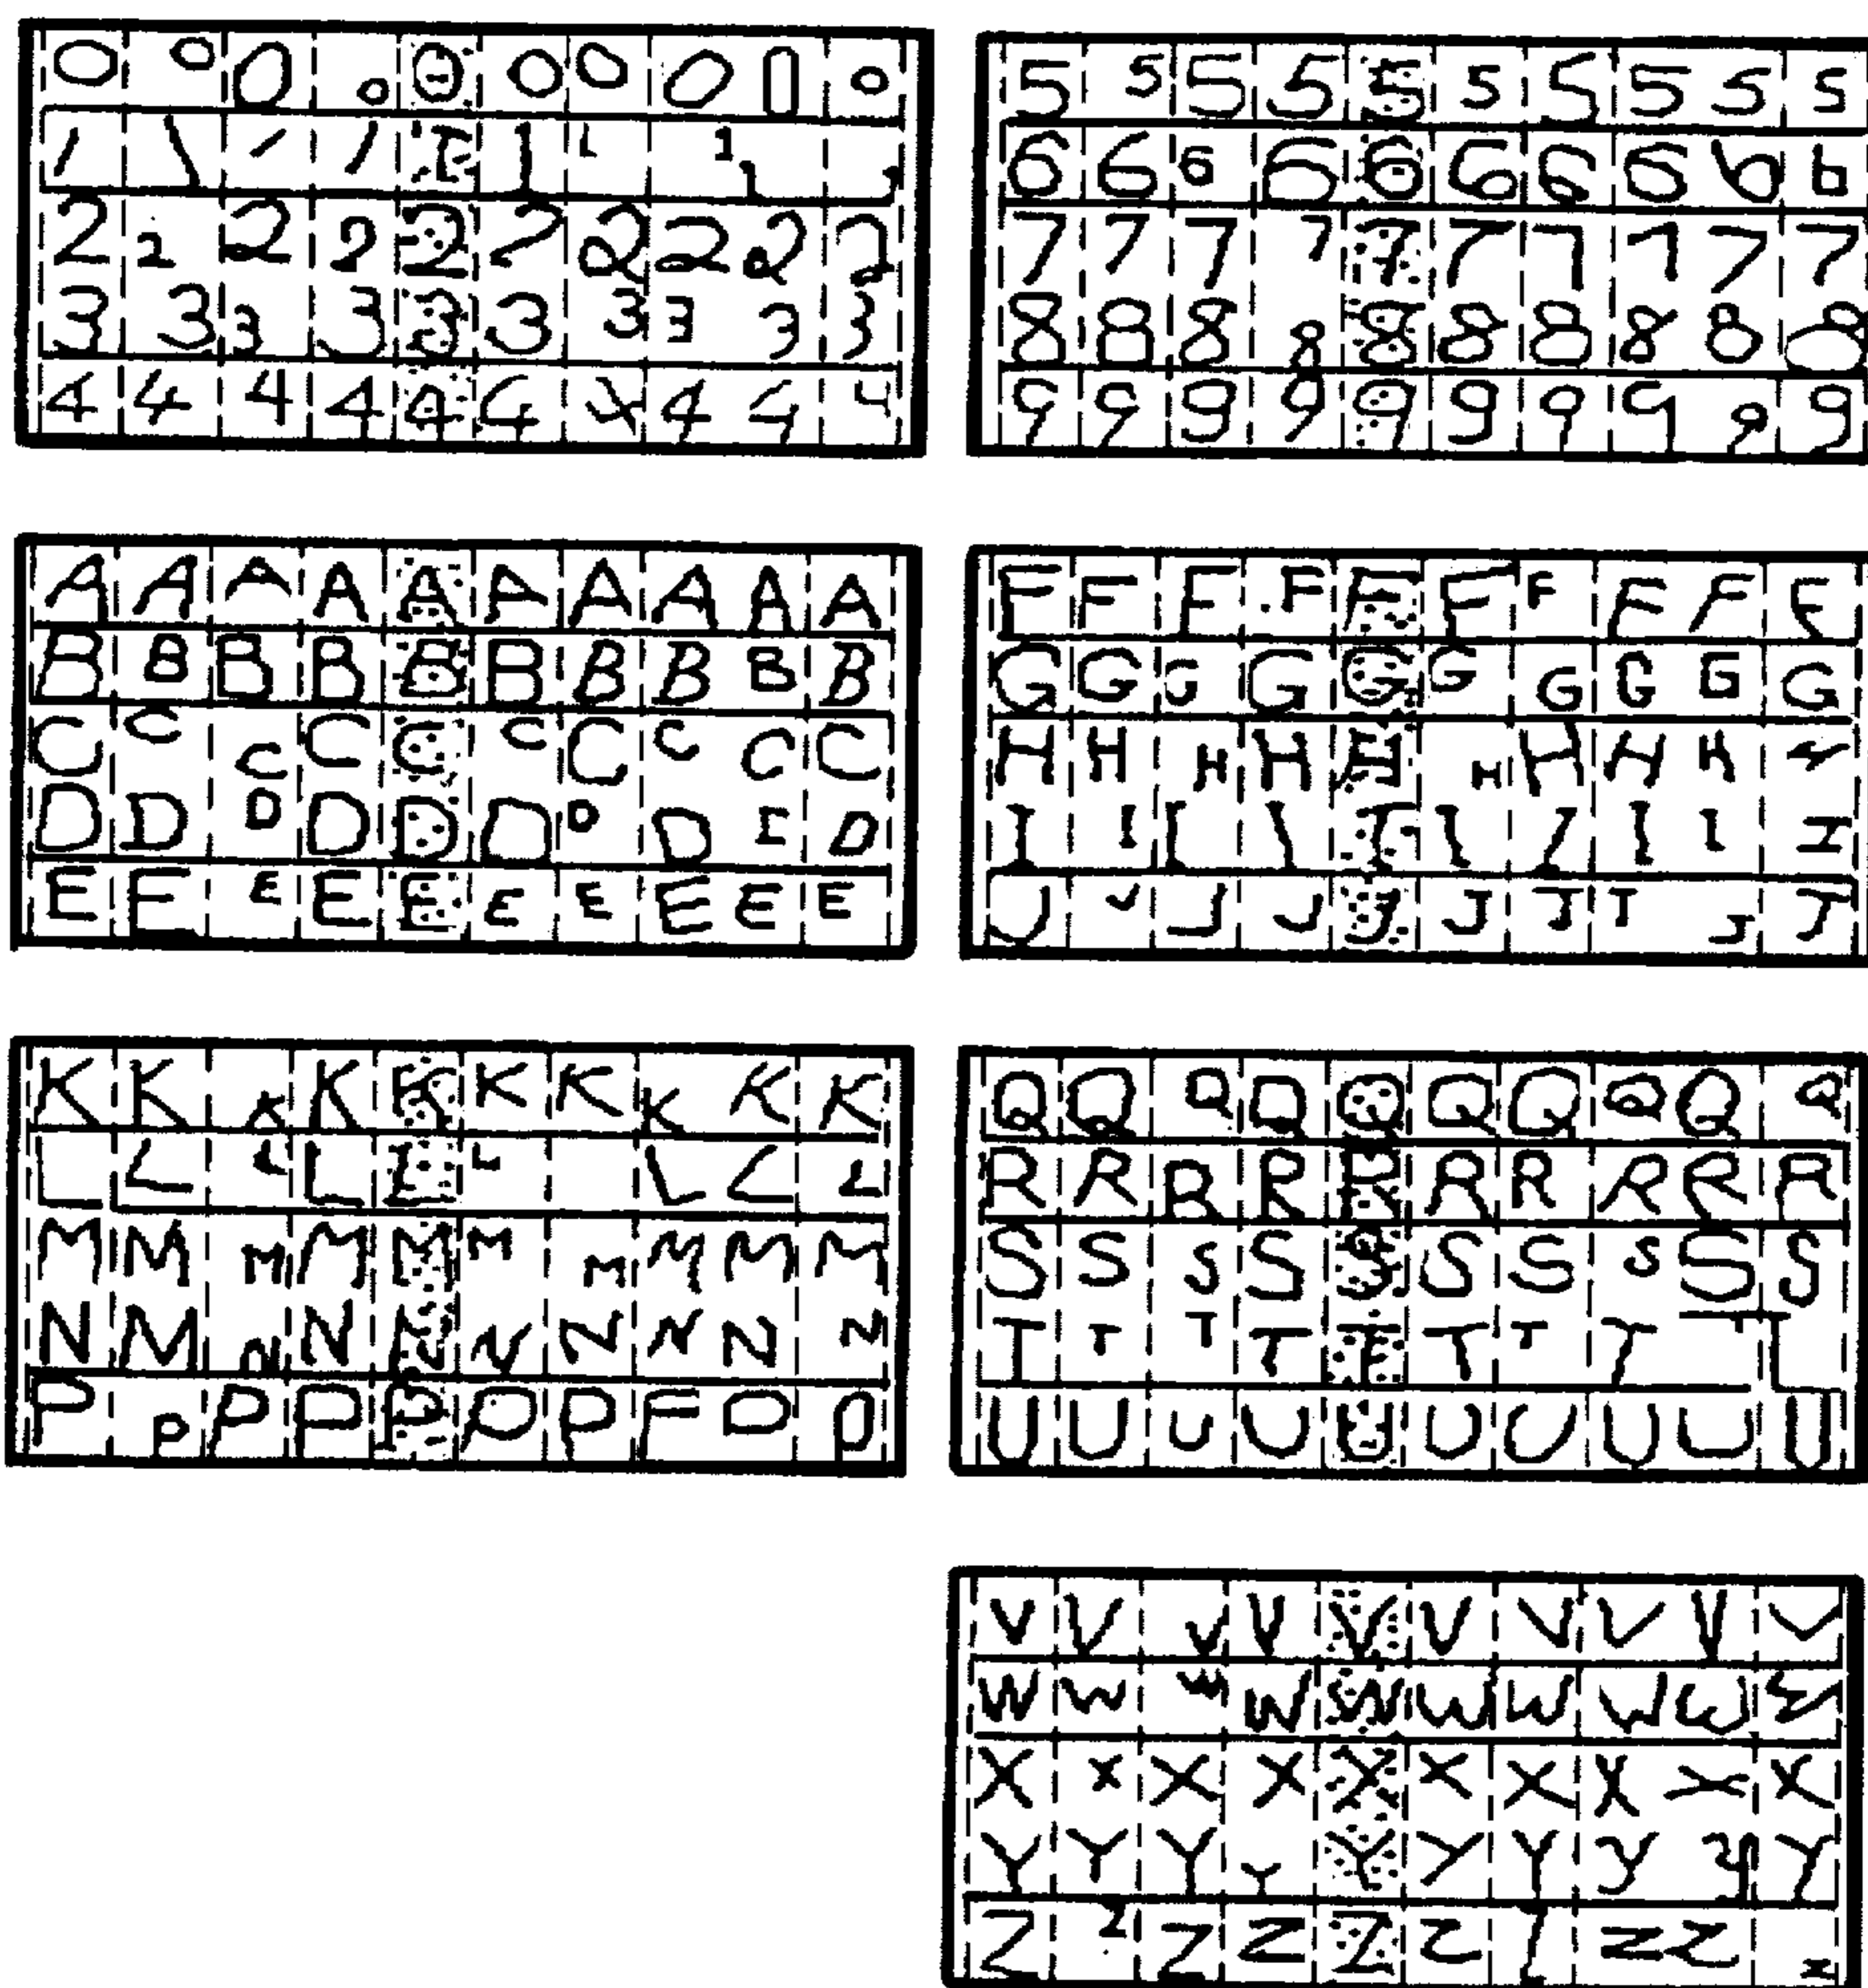 0 0 0 0 0 0 0 0 0 0
1 1 1 1 1 1 1 1 1 1
2 2 2 2 2 2 2 2 2 2
3 3 3 3 3 3 3 3 3 3
4 4 4 4 4 4 4 4 4 4
5 5 5 5 5 5 5 5 5 5
6 6 6 6 6 6 6 6 6 6
7 7 7 7 7 7 7 7 7 7
8 8 8 8 8 8 8 8 8 8
9 9 9 9 9 9 9 9 9 9
A A A A A A A A A A
B B B B B B B B B B
C C C C C C C C C C
D D D D D D D D D
E E E E E E E E E E
F F F F F F F F F F
G G G G G G G G G G
H H H H H H H H H
I I I I I I I I I I
J J J J J J J J J J
K K K K K K K K K K
L L L L L L L L L
M M M M M M M M M M
N M N N N N N N N
P P P P P P P
Q Q Q Q Q Q Q Q Q Q
R R R R R R R R R R
S S S S S S S S S S
T T T T T T T T T
U U U U U U U U U U
V V V V V V V V V V
W W W W W W W W W
X X X X X X X X X X
Y Y Y Y Y Y Y Y Y Y
Z Z Z Z Z Z Z Z